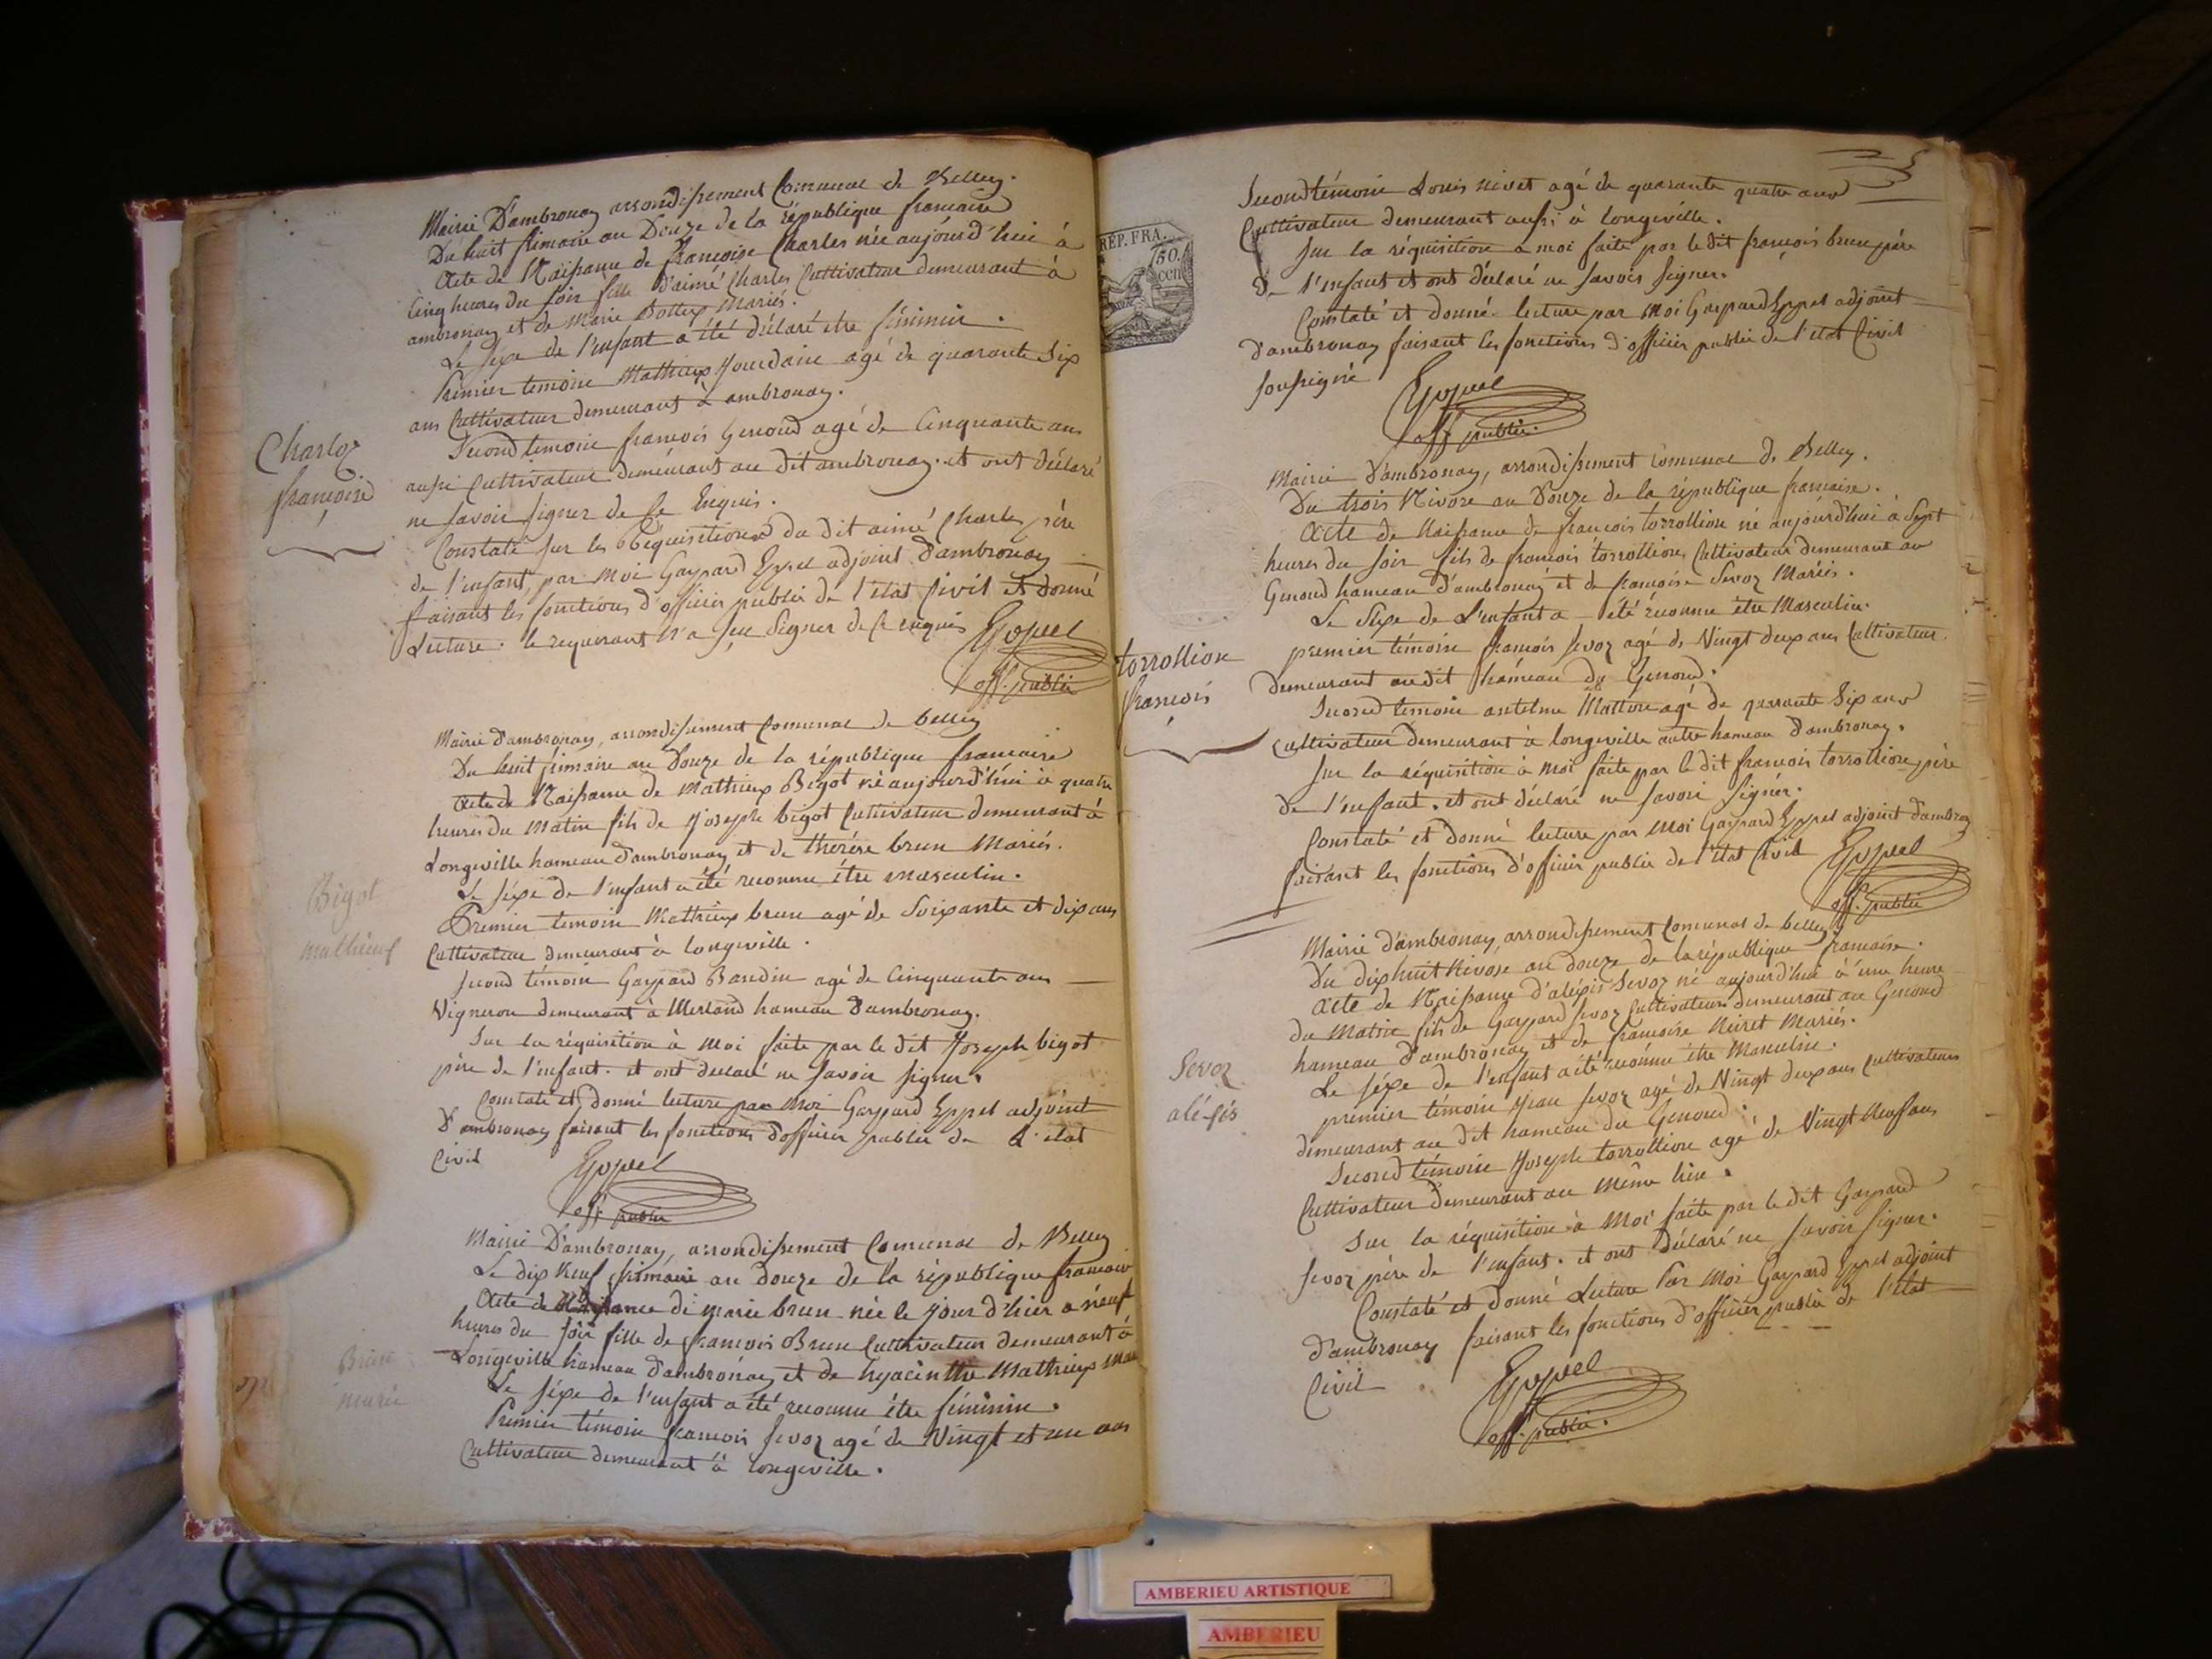 Mairie D'ambronay arrondissement Communal de Belley.
Du huit frimaire an Douze de la république francaise
Acte de Naissance de francoise Charles née aujourd'hui à
Cinq heures du soir fille d'aimé Charles Cultivateur demeurant à
ambronay et de Marie Bottex Mariés.
Le sexe de l'enfant a été déclaré etre féminin.
Premier temoin Mathieux Jourdain agé de quarante six
ans Cultivateur demeurant à ambronay.
Second temoin francois Genoud agé de Cinquante ans
aussi Cultivateur demeurant au dit ambronay. et ont déclaré
ne savoir signer de ce Enquis.
Constaté sur les Réquisitions du dit aimé Charles père
de l'enfant, par Moi Gaspard Eppel adjoint d'ambronay
faisant les fonctions d'officier public de l'état Civil et donné
Lecture. le requerant n'a seu Signer de ce enquis Eppel
off. public
Charles
francoise
Mairie d'ambronay, arrondissement Comunal de belley
Du huit frimaire an douze de la république francaise
Acte de Naissance de Mathieux Bigot né aujourd'hui à quatre
heures du Matin fils de Joseph bigot Cultivateur demeurant à
Longeville hameau d'ambronay et de thérèse brun Mariés.
Le séxe de l'enfant a été reconnu être masculin.
Premier temoin Mathieux brun agé de Soixante et dix ans
Cultivateur demeurant à longeville.
second témoin Gaspard Baudin agé de Cinquante ans
Vigneron demeurant à Merland hameau d'ambronay.
Sur la réquisition à Moi faite par le dit Joseph bigot
père de l'enfant. et ont declaré ne savoir signer.
Constaté et donné lecture par Moi Gaspard Eppel adjoint
D'ambronay faisant les fonctions d'officier public de L'état
Civil
Eppel
off. public
Bigot
mathieux
Mairie D'ambronay, arrondissement Comunal de Belley
Le dix Neuf frimaire an douze de la république francaise
Acte de Naissance de marie brun née le jour d'hier a neuf
heures du soir fille de francois Brun Cultivateur demeurant à
Longeville hameau d'ambronay et de hyacinthe Mathieux
Le séxe de l'enfant a été reconnu être féminin.
Premier témoin francois sevoz agé de Vingt et un ans
Cultivateur demeurant à longeville.
Brun
marie
5
Second témoin Louis nivet agé de quarante quatre ans
Cultivateur demeurant aussi à longeville.
sur la réquisition a moi faite par le dit francois brun père
de l'enfant et ont déclaré ne savoir signer.
Constaté et donné lecture par Moi Gaspard Eppel adjoint
d'ambronay faisant les fonctions d'officier public de l'état Civil
soussigné
Eppel
off. public.
RÉP. FRA.
50.
cen
Mairie d'ambronay, arrondissement comunal de Belley.
Du trois Nivose an Douze de la république francaise.
Acte de Naissance de francois torrollion né aujourd'hui à Sept
heures du soir fils de francois torrollion, Cultivateur demeurant au
Genoud hameau d'ambronay et de francoise Sevoz Mariés.
Le Sexe de L'enfant a été reconnu être Masculin.
premier témoin francois sevoz agé de Vingt deux ans Cultivateur
demeurant audit hameau du Genoud.
Second temoin antelme Matton agé de quarante six ans
Cultivateur demeurant à longeville autre hameau d'ambronay.
sur la réquisition à moi faite par le dit francois torrollion père
de l'enfant. et ont déclaré ne savoir signer.
Constaté et donné lecture par Moi Gaspard Eppel adjoint d'ambronay
faisant les fonctions d'officier public de l'état Civil Eppel
off. public
torrollion
francois
Mairie d'ambronay, arrondissement Comunal de belley
Du dix huit Nivose an douze de la république francaise.
Acte de Naissance d'alexis Sevoz né aujourd'hui à une heure
du Matin fils de Gaspard sevoz Cultivateur demeurant au Genoud
hameau d'ambronay et de francoise Nivet Mariés.
Le séxe de l'enfant a été reconnu être Masculin.
premier témoin Jean sevoz agé de Vingt deux ans Cultivateur
demeurant au dit hameau du Genoud.
Second témoin Joseph torrollion agé de Vingt Neuf ans
Cultivateur demeurant au même lieu.
Sur la réquisition à Moi faite par le dit Gaspard
sevoz père de l'enfant. et ont déclaré ne savoir signer.
Constaté et donné Lecture Par Moi Gaspard Eppel adjoint
d'ambronay faisant les fonctions d'officier public de l'état
Civil
Eppel
off. public.
Sevoz
aléxis
AMBERIEU ARTISTIQUE
AMBERIEU